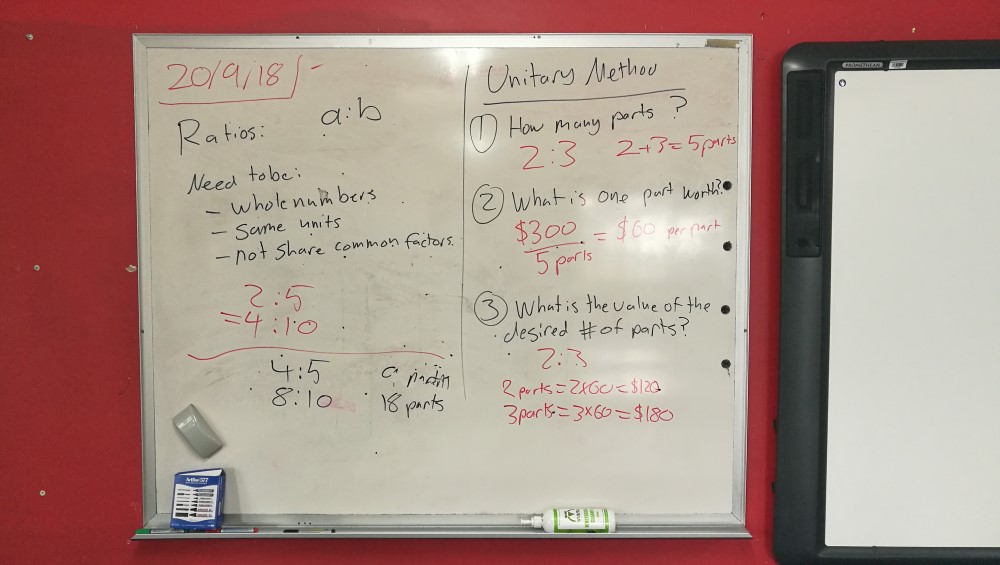 20/9/18
Ratios: a:b
Need to be:
- whole numbers
- Same units
- not share common factors.
2:5
=4:10
4:5 9 parts
8:10 18 parts
Unitary Method
① How many parts?
2:3 2+3=5parts
② What is one part worth?
$300 = $60 per part
5 parts
③ What is the value of the
desired # of parts?
2:3
2 parts = 2x60 = $120
3 parts = 3x60 = $180
PROMETHEAN
Artline 577